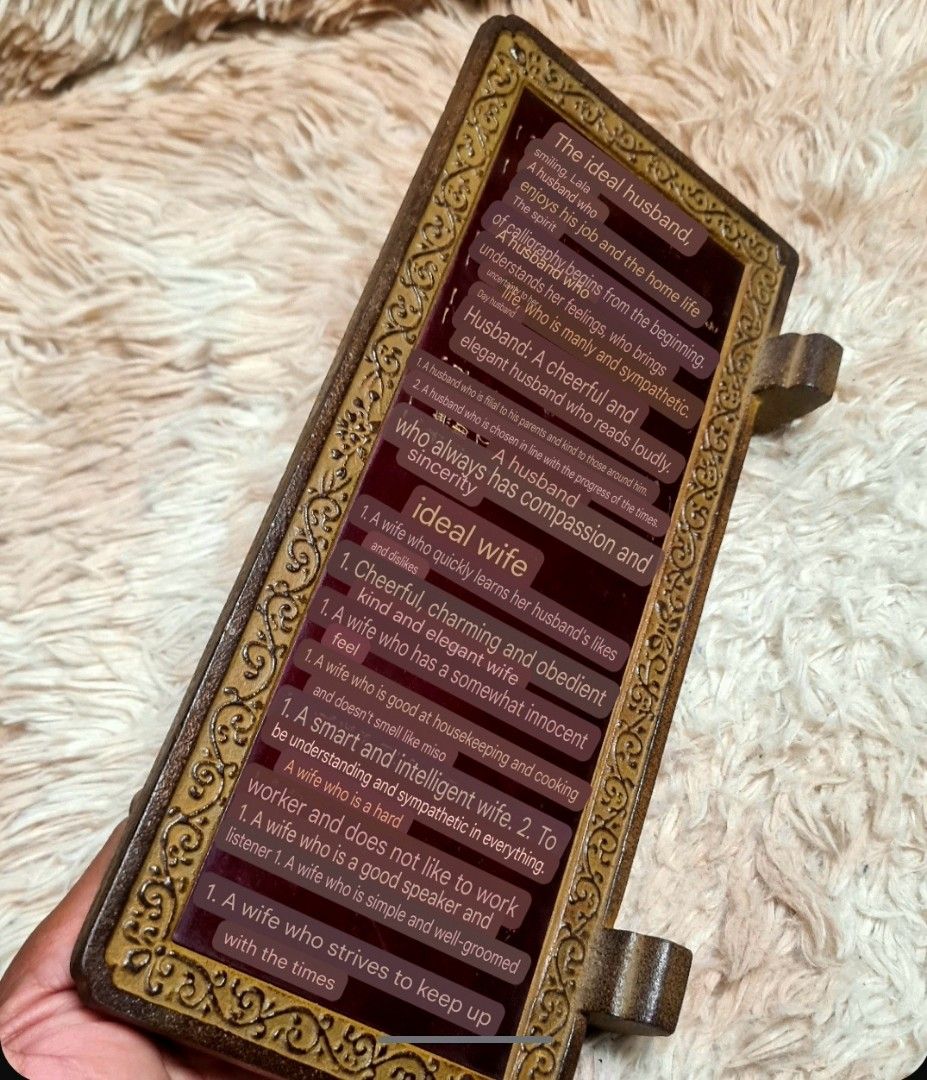 The ideal husband,
smiling, Lala
A husband who
enjoys his job and the home life
The spirit
of calligraphy begins from the beginning.
A husband who
understands her feelings, who brings
life who is manly and sympathetic.
Day husband
Husband: A cheerful and
elegant husband who reads loudly.
1. A husband who is filial to his parents and kind to those around him.
2. A husband who is chosen in line with the progress of the times.
A husband
who always has compassion and
sincerity
ideal wife
1. A wife who quickly learns her husband's likes
and dislikes
1. Cheerful, charming and obedient
kind and elegant wife
1. A wife who has a somewhat innocent
feel
1. A wife who is good at housekeeping and cooking
and doesn't smell like miso
1. A smart and intelligent wife. 2. To
be understanding and sympathetic in everything.
A wife who is a hard
worker and does not like to work
1. A wife who is a good speaker and
listener 1. A wife who is simple and well-groomed
1. A wife who strives to keep up
with the times